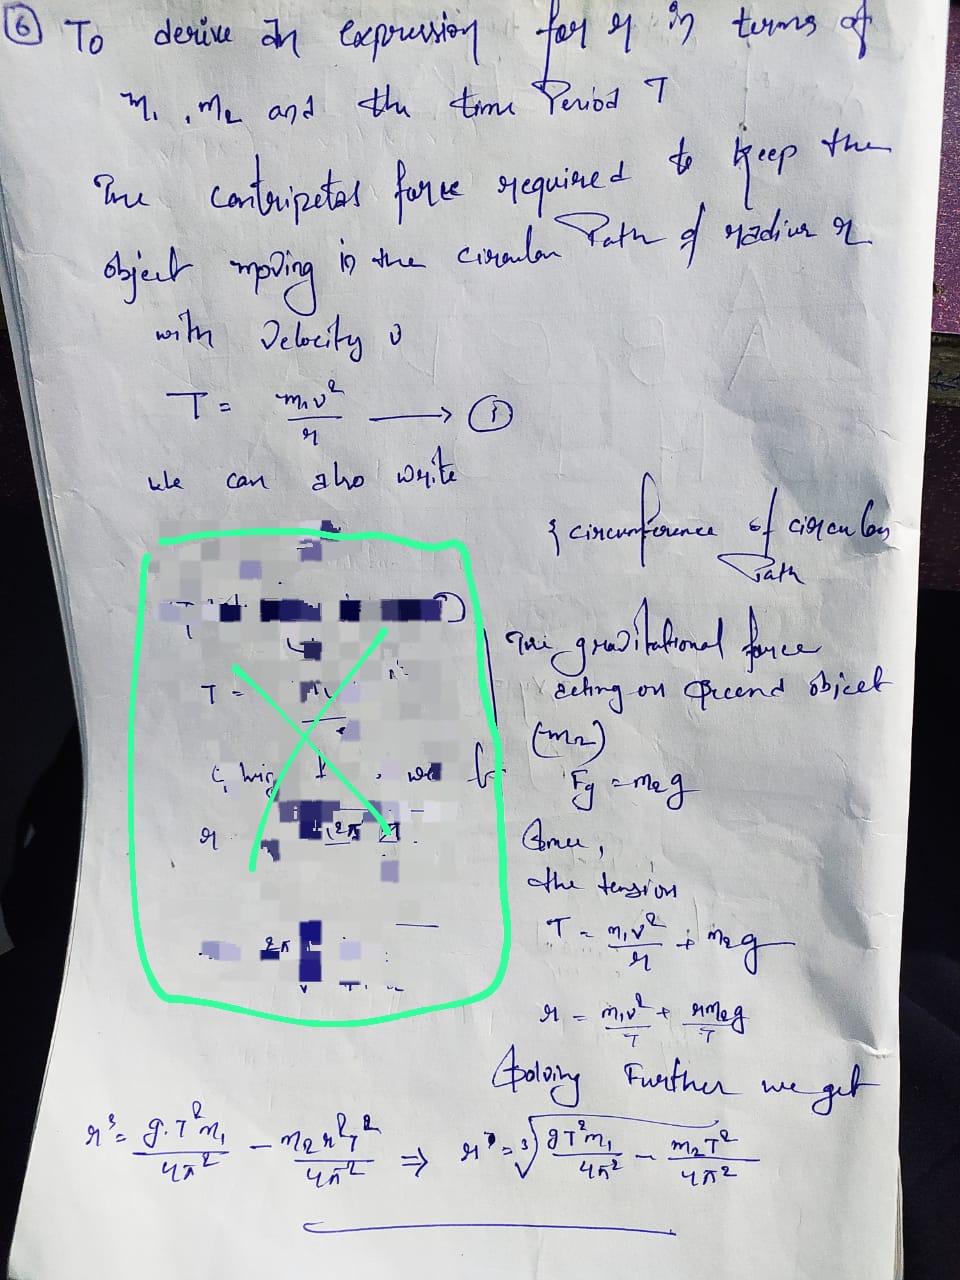 ⑥ To derive an expression for r in terms of
m₁, m₂ and the time Period T
The centripetal force required to keep the
object moving in the circular Path of radius r
with Velocity v
T = m₁v²/r ⟶ ①
We can also write
{ circumference of circular
Path
The gravitational force
acting on second object
(m₂)
Fg = m₂g
the tension
T = m₁v²/r + m₂g
r = m₁v²/T + rm₂g/T
Solving Further we get
r³ = g.T²m₁/4π² - m₂r²T²/4π² ⇒ r³ = ³√(gT²m₁/4π² - m₂T²/4π²)